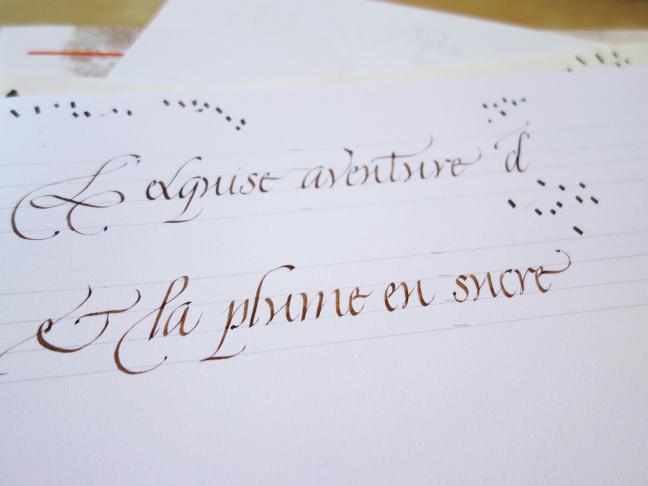 L'exquise aventure d'
& la plume en sucre